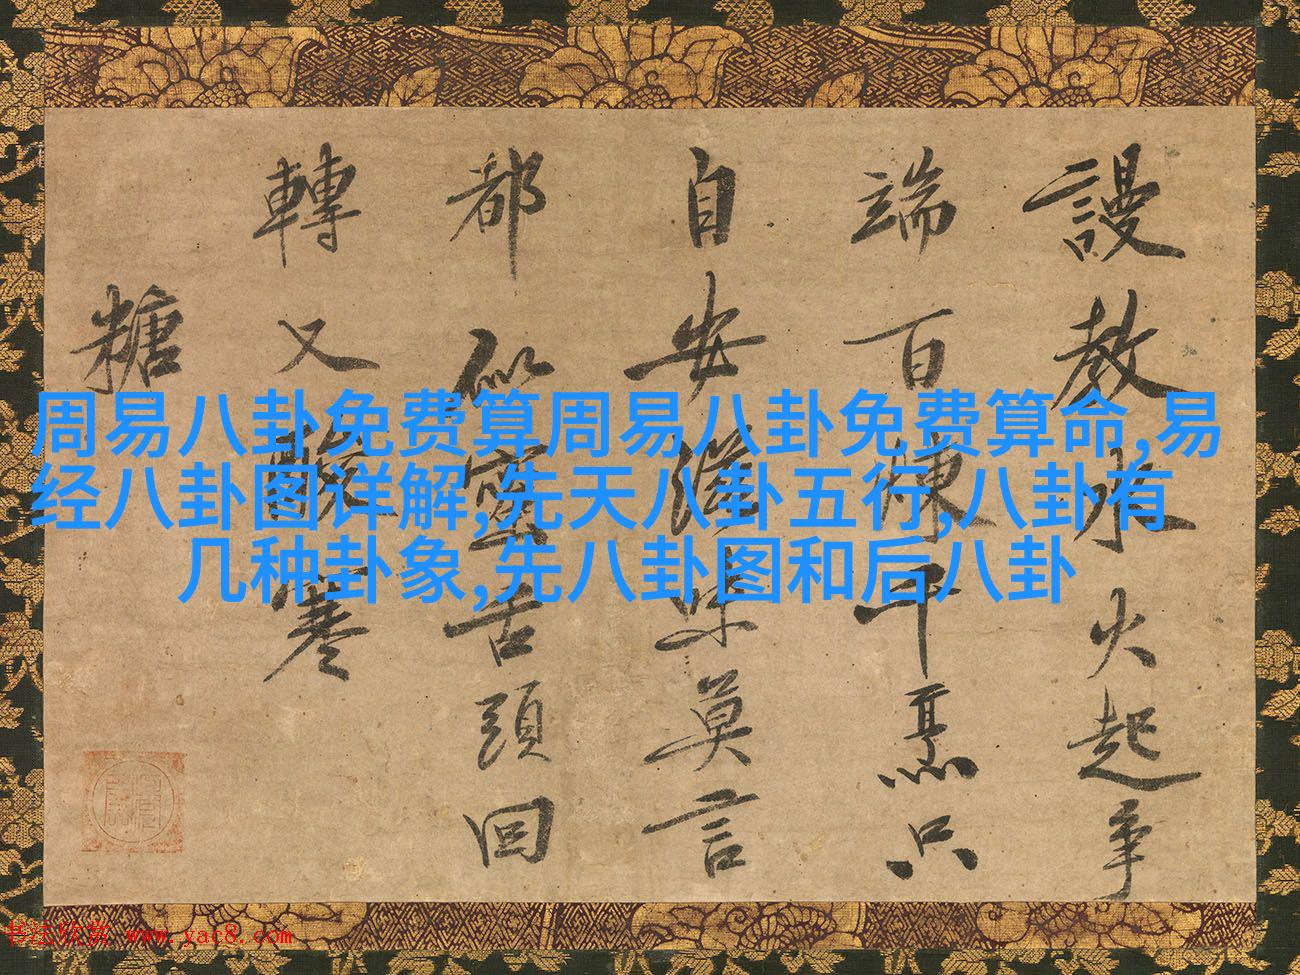 謾教水火起爭
端百煉千熏只
自安滋味莫言
都似靈舌頭回
轉又酸寒
糖
周易八卦免费算周易八卦免费算命,易
经八卦图详解,先天八卦五行,八卦有
几种卦象,先八卦图和后八卦
书法欣赏 www.yac8.com